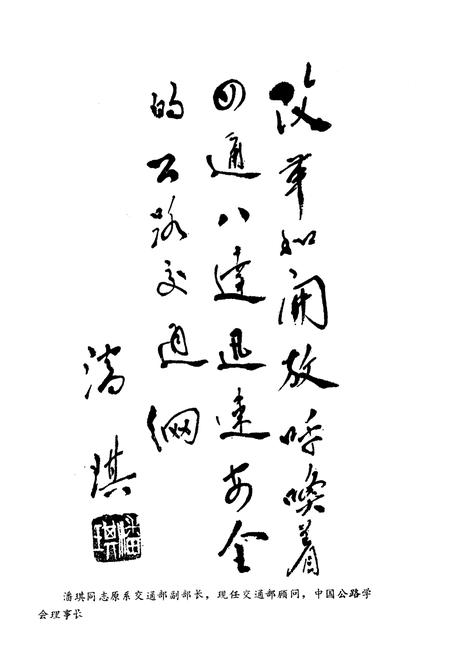 改革和开放呼唤着
四通八达迅速安全
的公路交通网
潘琪
潘琪
潘琪同志原系交通部副部长，现任交通部顾问，中国公路学
会理事长